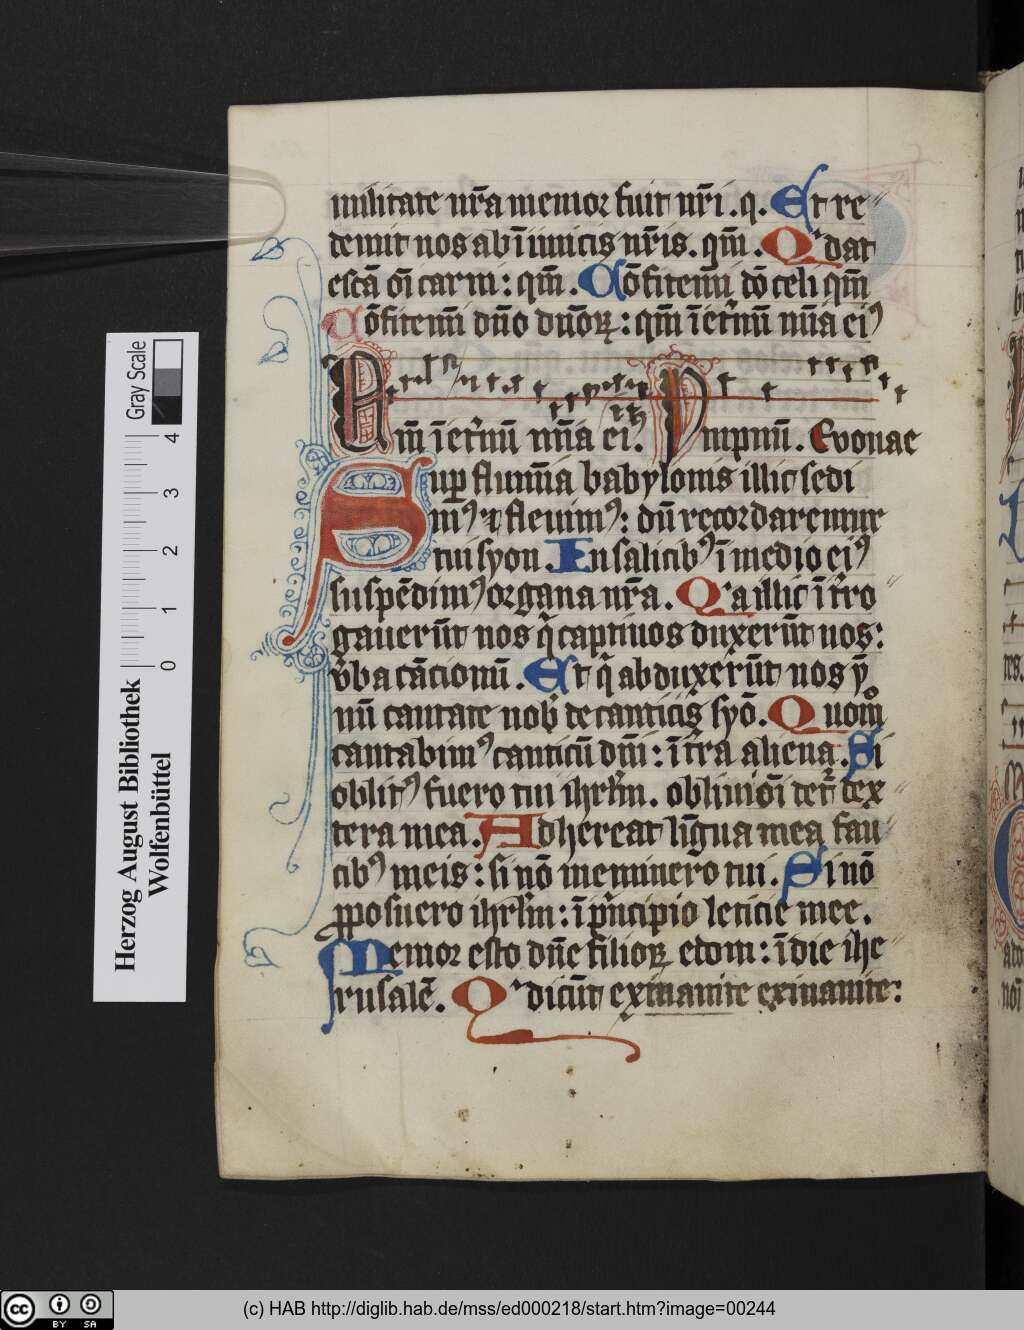 militate nr̄a memor fuit nr̄i . q. Et re
demit nos ab īimicis nr̄is . qm̄ . Qͥ dat
escā oı̄ carni : qm̄ . Cōfitemı̄ dō celi qm̄
Cōfitemı̄ dn̄o dn̄oꝝ : qm̄ ı̄ eťnū mīa eiꝰ
Qm̄ ı̄ eťnū mīa eiꝰ . Euouae
Suꝑ flumı̄a babylonis illic sedi
mꝰ ⁊ fleuimꝰ : dū recordaremur
tui syon . In salicibꝰ ı̄ medio eiꝰ
suspēdimꝰ organa nr̄a . Qͥa illic ı̄ťro
gauerūt nos q̄ captiuos duxerūt nos :
v̄ba cācionū . Et q̄ abduxerūt nos ẏ
nū cantate nob̄ de canticis syō . Quomͦ
cantabimꝰ canticū dn̄i : ı̄ ťra aliena . Si
oblitꝰ fuero tui ihrl̄m . obliuioı̄ det̄ dex
tera mea . Adhereat lı̄gua mea fau
cibꝰ meis : si nō meminero tui . Si nō
ꝓposuero ihrl̄m : ı̄ pͥncipio leticie mee .
Memor esto dn̄e filioꝝ edom : ı̄ die ihe
rusalē . Qͥ dicūt exinanite exinanite :
Herzog August Bibliothek
Wolfenbüttel
Gray Scale
0 1 2 3 4
cc BY SA
(c) HAB http://diglib.hab.de/mss/ed000218/start.htm?image=00244